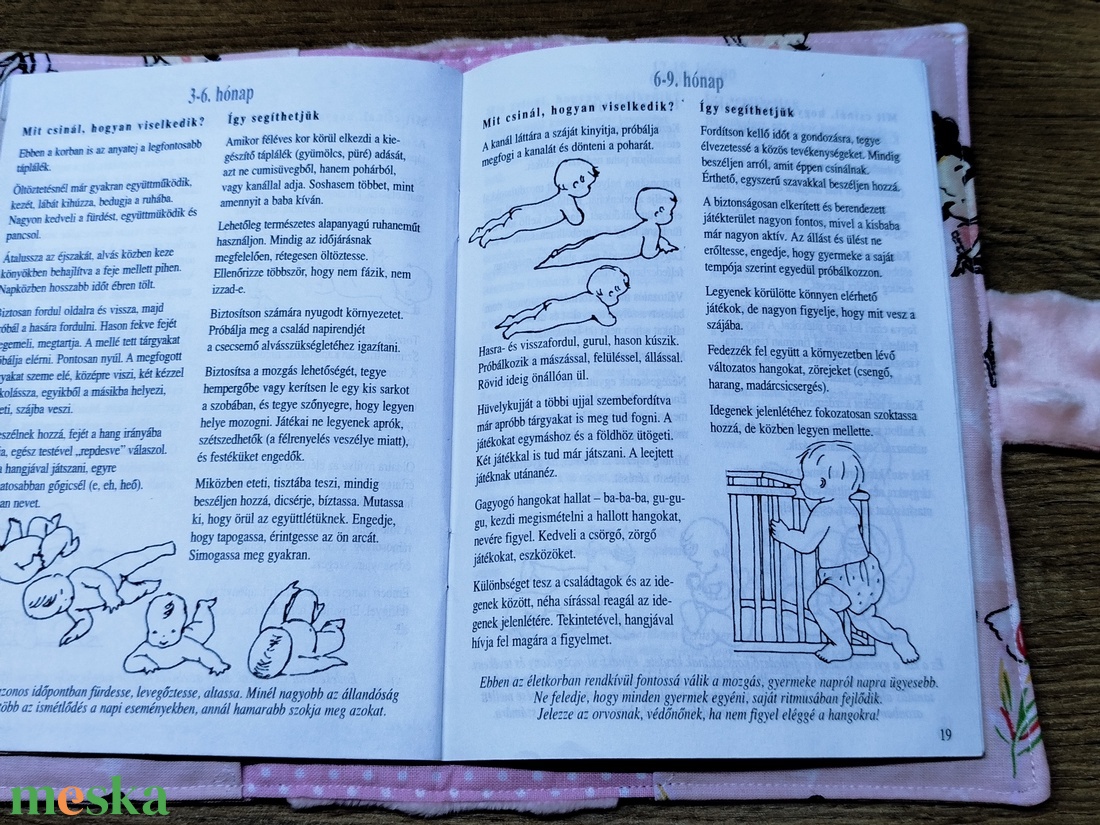 3-6. hónap
Mit csinál, hogyan viselkedik?
Ebben a korban is az anyatej a legfontosabb
táplálék.
Öltöztetésnél már gyakran együttműködik,
kezét, lábát kihúzza, bedugja a ruhába.
Nagyon kedveli a fürdést, együttműködik és
pancsol.
Átalussza az éjszakát, alvás közben keze
könyökben behajlítva a feje mellett pihen.
Napközben hosszabb időt ébren tölt.
Biztosan fordul oldalra és vissza, majd
próbál a hasára fordulni. Hason fekve fejét
megemeli, megtartja. A mellé tett tárgyakat
próbálja elérni. Pontosan nyúl. A megfogott
szeme elé, középre viszi, két kézzel
egyikből a másikba helyezi,
szájba veszi.
hozzá, fejét a hang irányába
egész testével „repdesve” válaszol.
hangjával játszani, egyre
gőgicsél (e, eh, heő).
nevet.
Így segíthetjük
Amikor féléves kor körül elkezdi a kie-
gészítő táplálék (gyümölcs, püré) adását,
azt ne cumisüvegből, hanem pohárból,
vagy kanállal adja. Soshasem többet, mint
amennyit a baba kíván.
Lehetőleg természetes alapanyagú ruhaneműt
használjon. Mindig az időjárásnak
megfelelően, rétegesen öltöztesse.
Ellenőrizze többször, hogy nem fázik, nem
izzad-e.
Biztosítson számára nyugodt környezetet.
Próbálja meg a család napirendjét
a csecsemő alvásszükségletéhez igazítani.
Biztosítsa a mozgás lehetőségét, tegye
hempergőbe vagy kerítsen le egy kis sarkot
a szobában, és tegye szőnyegre, hogy legyen
helye mozogni. Játékai ne legyenek aprók,
szétszedhetők (a félrenyelés veszélye miatt),
és festéküket engedők.
Miközben eteti, tisztába teszi, mindig
beszéljen hozzá, dicsérje, bíztassa. Mutassa
ki, hogy örül az együttlétüknek. Engedje,
hogy tapogassa, érintgesse az ön arcát.
Simogassa meg gyakran.
azonos időpontban fürdesse, levegőztesse, altassa. Minél nagyobb az állandóság
több az ismétlődés a napi eseményekben, annál hamarabb szokja meg azokat.
6-9. hónap
Mit csinál, hogyan viselkedik?
A kanál láttára a száját kinyitja, próbálja
megfogi a kanalát és dönteni a poharát.
Hasra- és visszafordul, gurul, hason kúszik.
Próbálkozik a mászással, felüléssel, állással.
Rövid ideig önállóan ül.
Hüvelykujját a többi ujjal szembefordítva
már apróbb tárgyakat is meg tud fogni. A
játékokat egymáshoz és a földhöz ütögeti.
Két játékkal is tud már játszani. A leejtett
játéknak utánanéz.
Gagyogó hangokat hallat – ba-ba-ba, gu-gu-
gu, kezdi megismételni a hallott hangokat,
nevére figyel. Kedveli a csörgő, zörgő
játékokat, eszközöket.
Különbséget tesz a családtagok és az ide-
genek között, néha sírással reagál az ide-
genek jelenlétére. Tekintetével, hangjával
hívja fel magára a figyelmet.
Így segíthetjük
Fordítson kellő időt a gondozásra, tegye
élvezetessé a közös tevékenységeket. Mindig
beszéljen arról, amit éppen csinálnak.
Érthető, egyszerű szavakkal beszéljen hozzá.
A biztonságosan elkerített és berendezett
játékterület nagyon fontos, mivel a kisbaba
már nagyon aktív. Az állást és ülést ne
erőltesse, engedje, hogy gyermeke a saját
tempója szerint egyedül próbálkozzon.
Legyenek körülötte könnyen elérhető
játékok, de nagyon figyelje, hogy mit vesz a
szájába.
Fedezzék fel együtt a környezetben lévő
változatos hangokat, zörejeket (csengő,
harang, madárcsicsergés).
Idegenek jelenlétéhez fokozatosan szoktassa
hozzá, de közben legyen mellette.
Ebben az életkorban rendkívül fontossá válik a mozgás, gyermeke napról napra ügyesebb.
Ne feledje, hogy minden gyermek egyéni, saját ritmusában fejlődik.
Jelezze az orvosnak, védőnőnek, ha nem figyel eléggé a hangokra!
19
meska